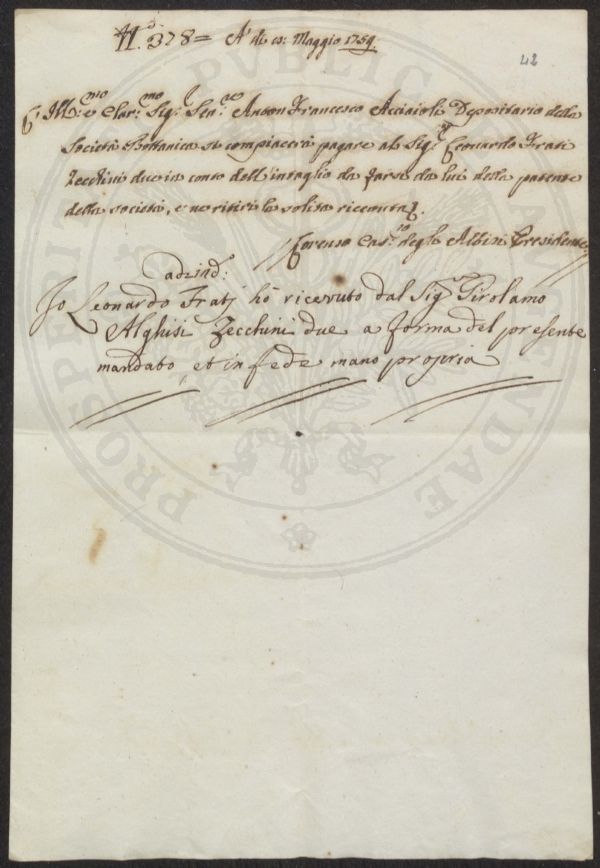 N.º 378 = A' di 10: Maggio 1759.
42
L' Ill:mo e Clar:mo Sig: Sen:re Anton Francesco Acciaioli Depositario della
Società Bottanica si compiacerà pagare al Sig:r Leonardo Frati
Zecchini due in conto dell'intaglio da farsi da lui della patente
della società, e ne ritiri la solita ricevuta.
Lorenzo Cas:ro degli Albizi Presidente
ad:ind:
Io Leonardo Fratj hò ricevuto dal Sig Girolamo
Alghisi Zecchini due a forma del presente
mandato, et in fede mano propria
PUBLICAE
PROSPERITATI
AUGENDAE